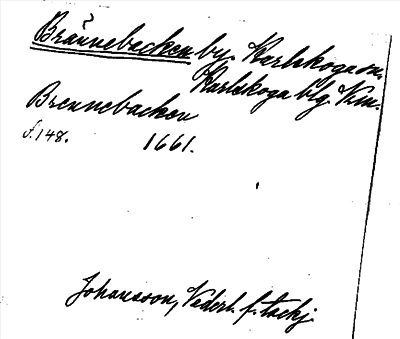 Brännebacken by. Karlskoga sn.
Karlskoga blg. Vrm.
Brennebacken
f. 148. 1661.
Johansson, Vederl. f. tackj.